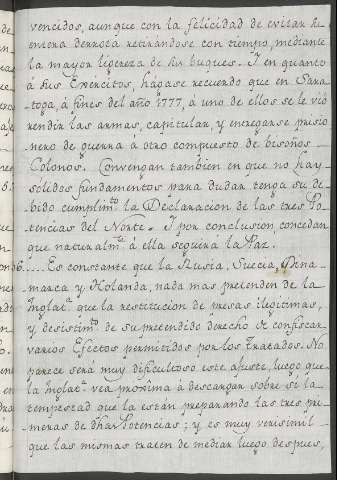 vencidos, aunque con la felicidad de evitar su
entera derrota retirándose con tiempo, mediante
la mayor ligereza de sus buques. I en quanto
á sus Exércitos, hágase recuerdo que en Sara
toga, á fines del año 1777, á uno de ellos se le vió
rendir las armas, capitular, y entregarse prisio
nero de guerra á otro compuesto de bisoños
Colonos. Convengan tambien en que no hay
solidos fundamentos para dudar tenga su de
bido cumplimto. la Declaracion de las tres Po
tencias del Norte. I por conclusion, concedan
que naturalmte. á ella seguira la Paz.
6.... Es constante que la Rusia, Suecia, Dina
marca y Holanda, nada mas pretenden de la
Inglatra. que la restitucion de presas ilegitimas,
y desistimto. de su pretendido derecho de confiscar
varios Efectos permitidos por los Tratados. No
parece será muy dificultoso este ajuste, luego que
la Inglatra. vea próxima á descargar sobre si la
tempestad que la están preparando las tres pri
meras de dhas Potencias; y es muy verisimil
que las mismas traten de mediar luego despues,